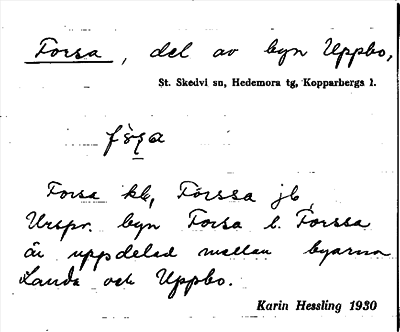 Forsa, del av byn Uppbo,
St. Skedvi sn, Hedemora tg, Kopparbergs l.
Forsa kk, Forssa jb,
Urspr. byn Forsa l. Forssa
är uppdelad mellan byarna
Landa och Uppbo.
Karin Hessling 1930